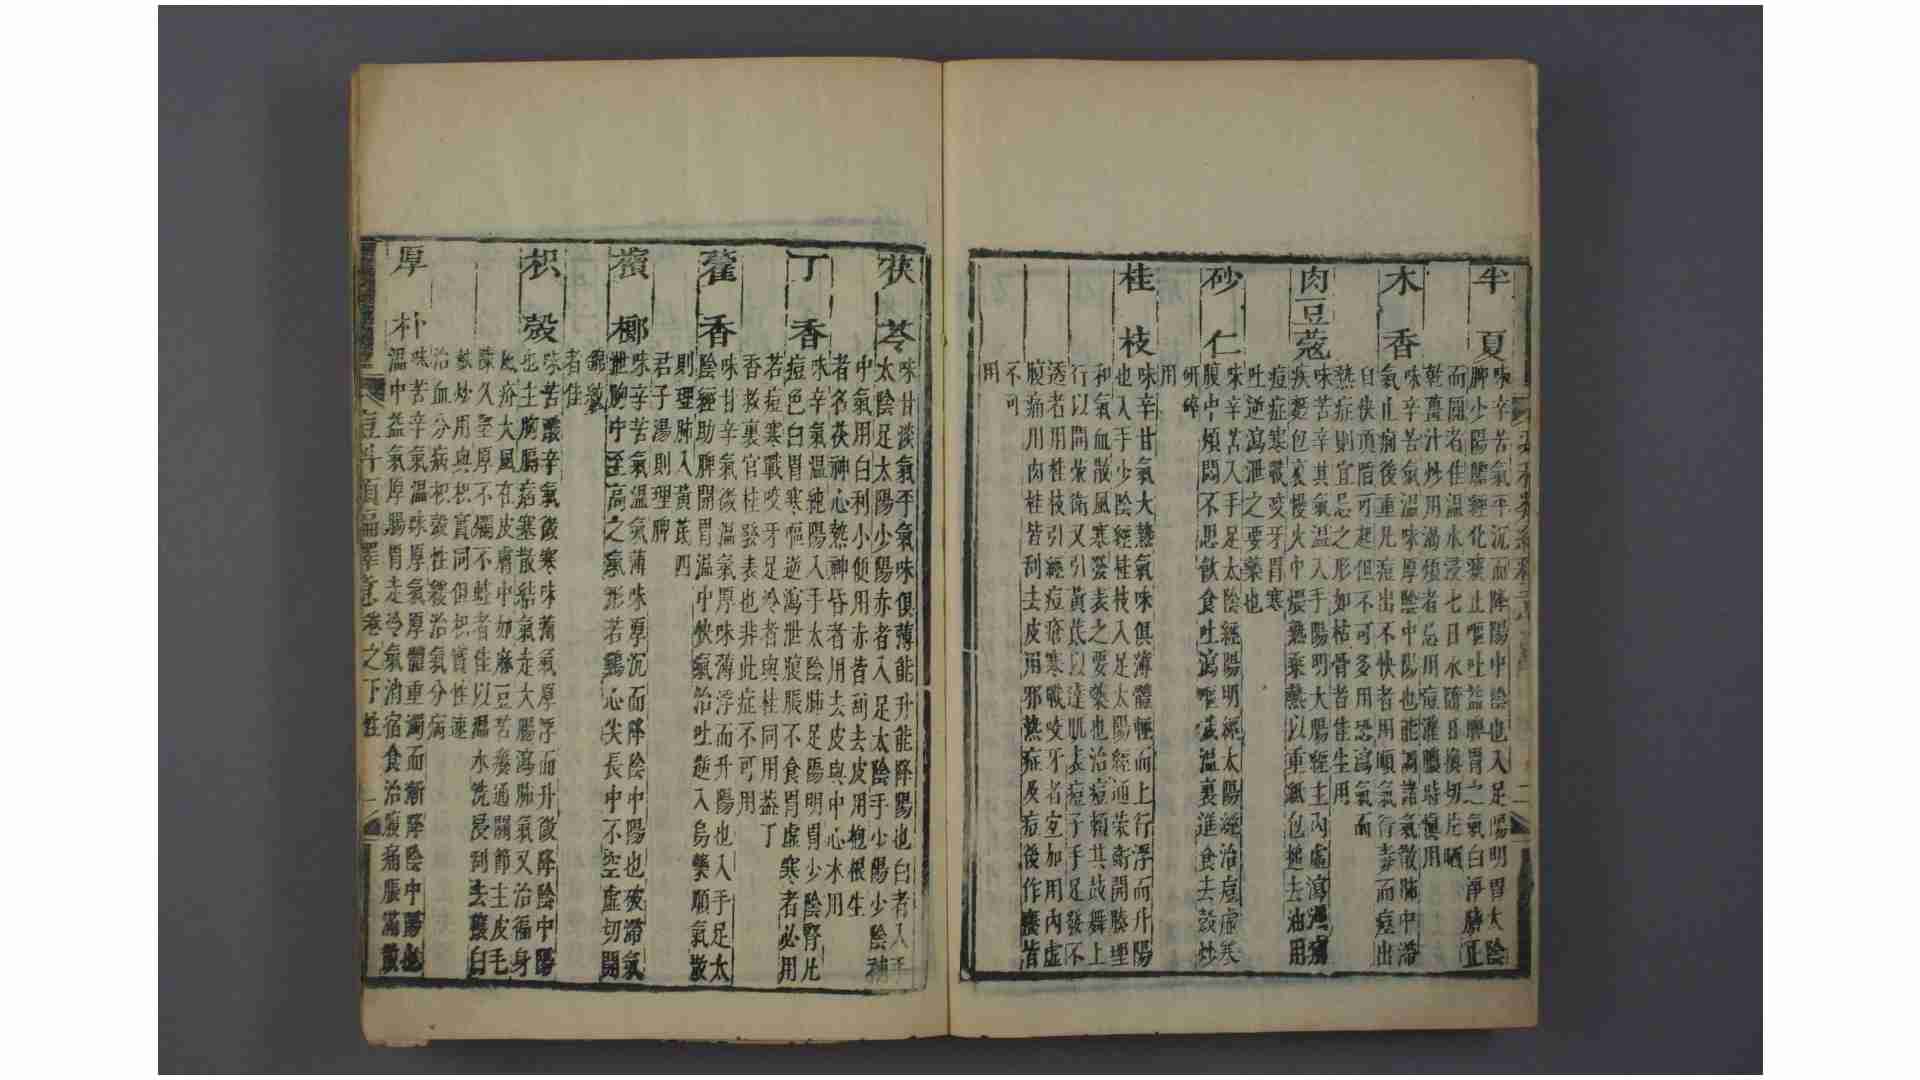 半夏
味辛苦氣平沉而降陽中陰也入足陽明胃太陰
脾少陽膽經化痰止嘔吐益脾胃之氣白淨臍正
而圓者佳溫水浸七日水隨日換切片晒
乾薑汁炒用渴煩者忌用痘灌膿時慎用
木香
味辛苦氣溫味厚陰中陽也能調諸氣散肺中滯
氣止痢後重凡痘出不快者用順氣行毒而痘出
自快頂陷可起但不可多用恐瀉氣而
熱症則宜忌之形如枯骨者佳生用
肉豆蔻
味苦辛其氣溫入手陽明大腸經主內虛瀉瀉痛
疾麵包裹慢火中煨熟乘熱以重紙包搥去油用
痘症寒戰咬牙胃寒
吐逆瀉泄之要藥也
砂仁
味辛苦入手足太陰經陽明經太陽經治痘虛寒
腹中煩悶不思飲食吐瀉嘔噦溫裏進食去殼炒
研碎
用
桂枝
味辛甘氣大熱氣味俱薄體輕而上行浮而升陽
也入手少陰經桂枝入足太陽經通榮衛開腠理
和氣血散風寒發表之要藥也治痘頼其鼓舞上
行以開榮衛又引黃芪以達肌表痘子手足發不
透者用桂枝引經痘瘡寒戰咬牙者宜加用內虛
腹痛用肉桂皆刮去皮用邪熱症及痘後作癢皆
不可
用
茯苓
味甘淡氣平氣味俱薄能升能降陽也白者入手
太陰足太陽少陽赤者入足太陰手少陽少陰補
中氣用白利小便用赤皆刮去皮用抱根生
者名茯神心熱神昏者用去皮與中心木用
丁香
味辛氣溫純陽入手太陰肺足陽明胃少陰腎凡
痘色白胃寒嘔逆瀉泄腹脹不食胃虛寒者必用
若痘寒戰咬牙足冷者與桂同用蓋丁
香救裏官桂發表也非此症不可用
藿香
味甘辛氣微溫氣厚味薄浮而升陽也入手足太
陰經助脾開胃溫中快氣治吐逆入烏藥順氣散
則理肺入黃芪四
君子湯則理脾
檳榔
味辛苦氣溫氣薄味厚沉而降陰中陽也破滯氣
泄胸中至高之氣形若雞心尖長中不空虛切開
錦紋
者佳
枳殼
味苦酸辛氣微寒味薄氣厚浮而升微降陰中陽
也主胸膈痞塞散結氣走大腸瀉肺氣又治徧身
風疹大風在皮膚中如麻豆苦癢通關節主皮毛
陳久堅厚不爛不蛀者佳以溫水洗浸刮去瓤白
麩炒用與枳實同但枳實性速
治血分病枳殼性緩治氣分病
厚朴
味苦辛氣溫味厚氣厚體重濁而漸降陰中陽也
溫中益氣厚腸胃走冷氣消宿食治腹痛脹滿散
痘科類編釋意卷之下